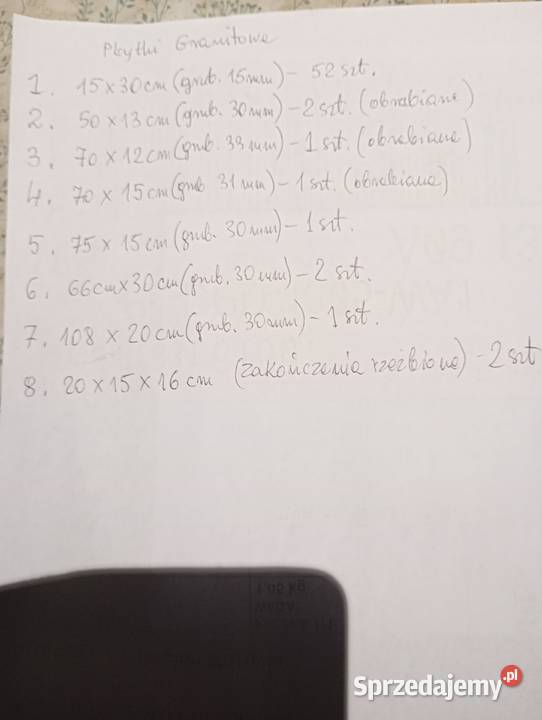 Płytki Granitowe
1. 15x30cm (grub. 15mm) - 52 szt.
2. 50x13cm (grub. 30mm) - 2szt. (obrabiane)
3. 70x12cm (grub. 33mm) - 1szt. (obrabiane)
4. 70x15cm (grub 31mm) - 1szt. (obrabiane)
5. 75x15cm (grub. 30mm) - 1szt.
6. 66cmx30cm (grub. 30mm) - 2 szt.
7. 108x20cm (grub. 30mm) - 1 szt.
8. 20x15x16cm (zakończenia rzeźbione) - 2szt
Sprzedajemy.pl